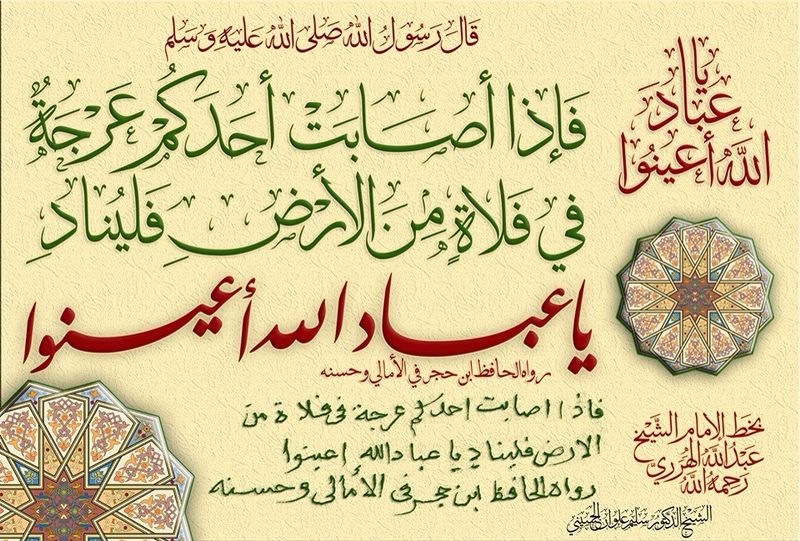 قَالَ رَسُولُ اللهِ صَلَى اللهُ عَلَيْهِ وَسَلَم
فَإذا أصَابَتْ أحَدَكُم عَرْجَةٌ
في فَلاةٍ مِنَ الأرْضِ فَليُنادِ
يا عباد الله أعينوا
رواه الحافظ ابن حجر في الأمالي وحسنه
فاذا اصابت احدكم عرجة في فلاة من
الارض فليناد يا عباد الله اعينوا
رواه الحافظ ابن حجر في الأمالي وحسنه
يا
عبادَ
اللهِ أعينُوا
بخط الإمام الشيخ
عبد الله الهرري
رحمه الله
الشيخ الدكتور سليم علوان الحسيني